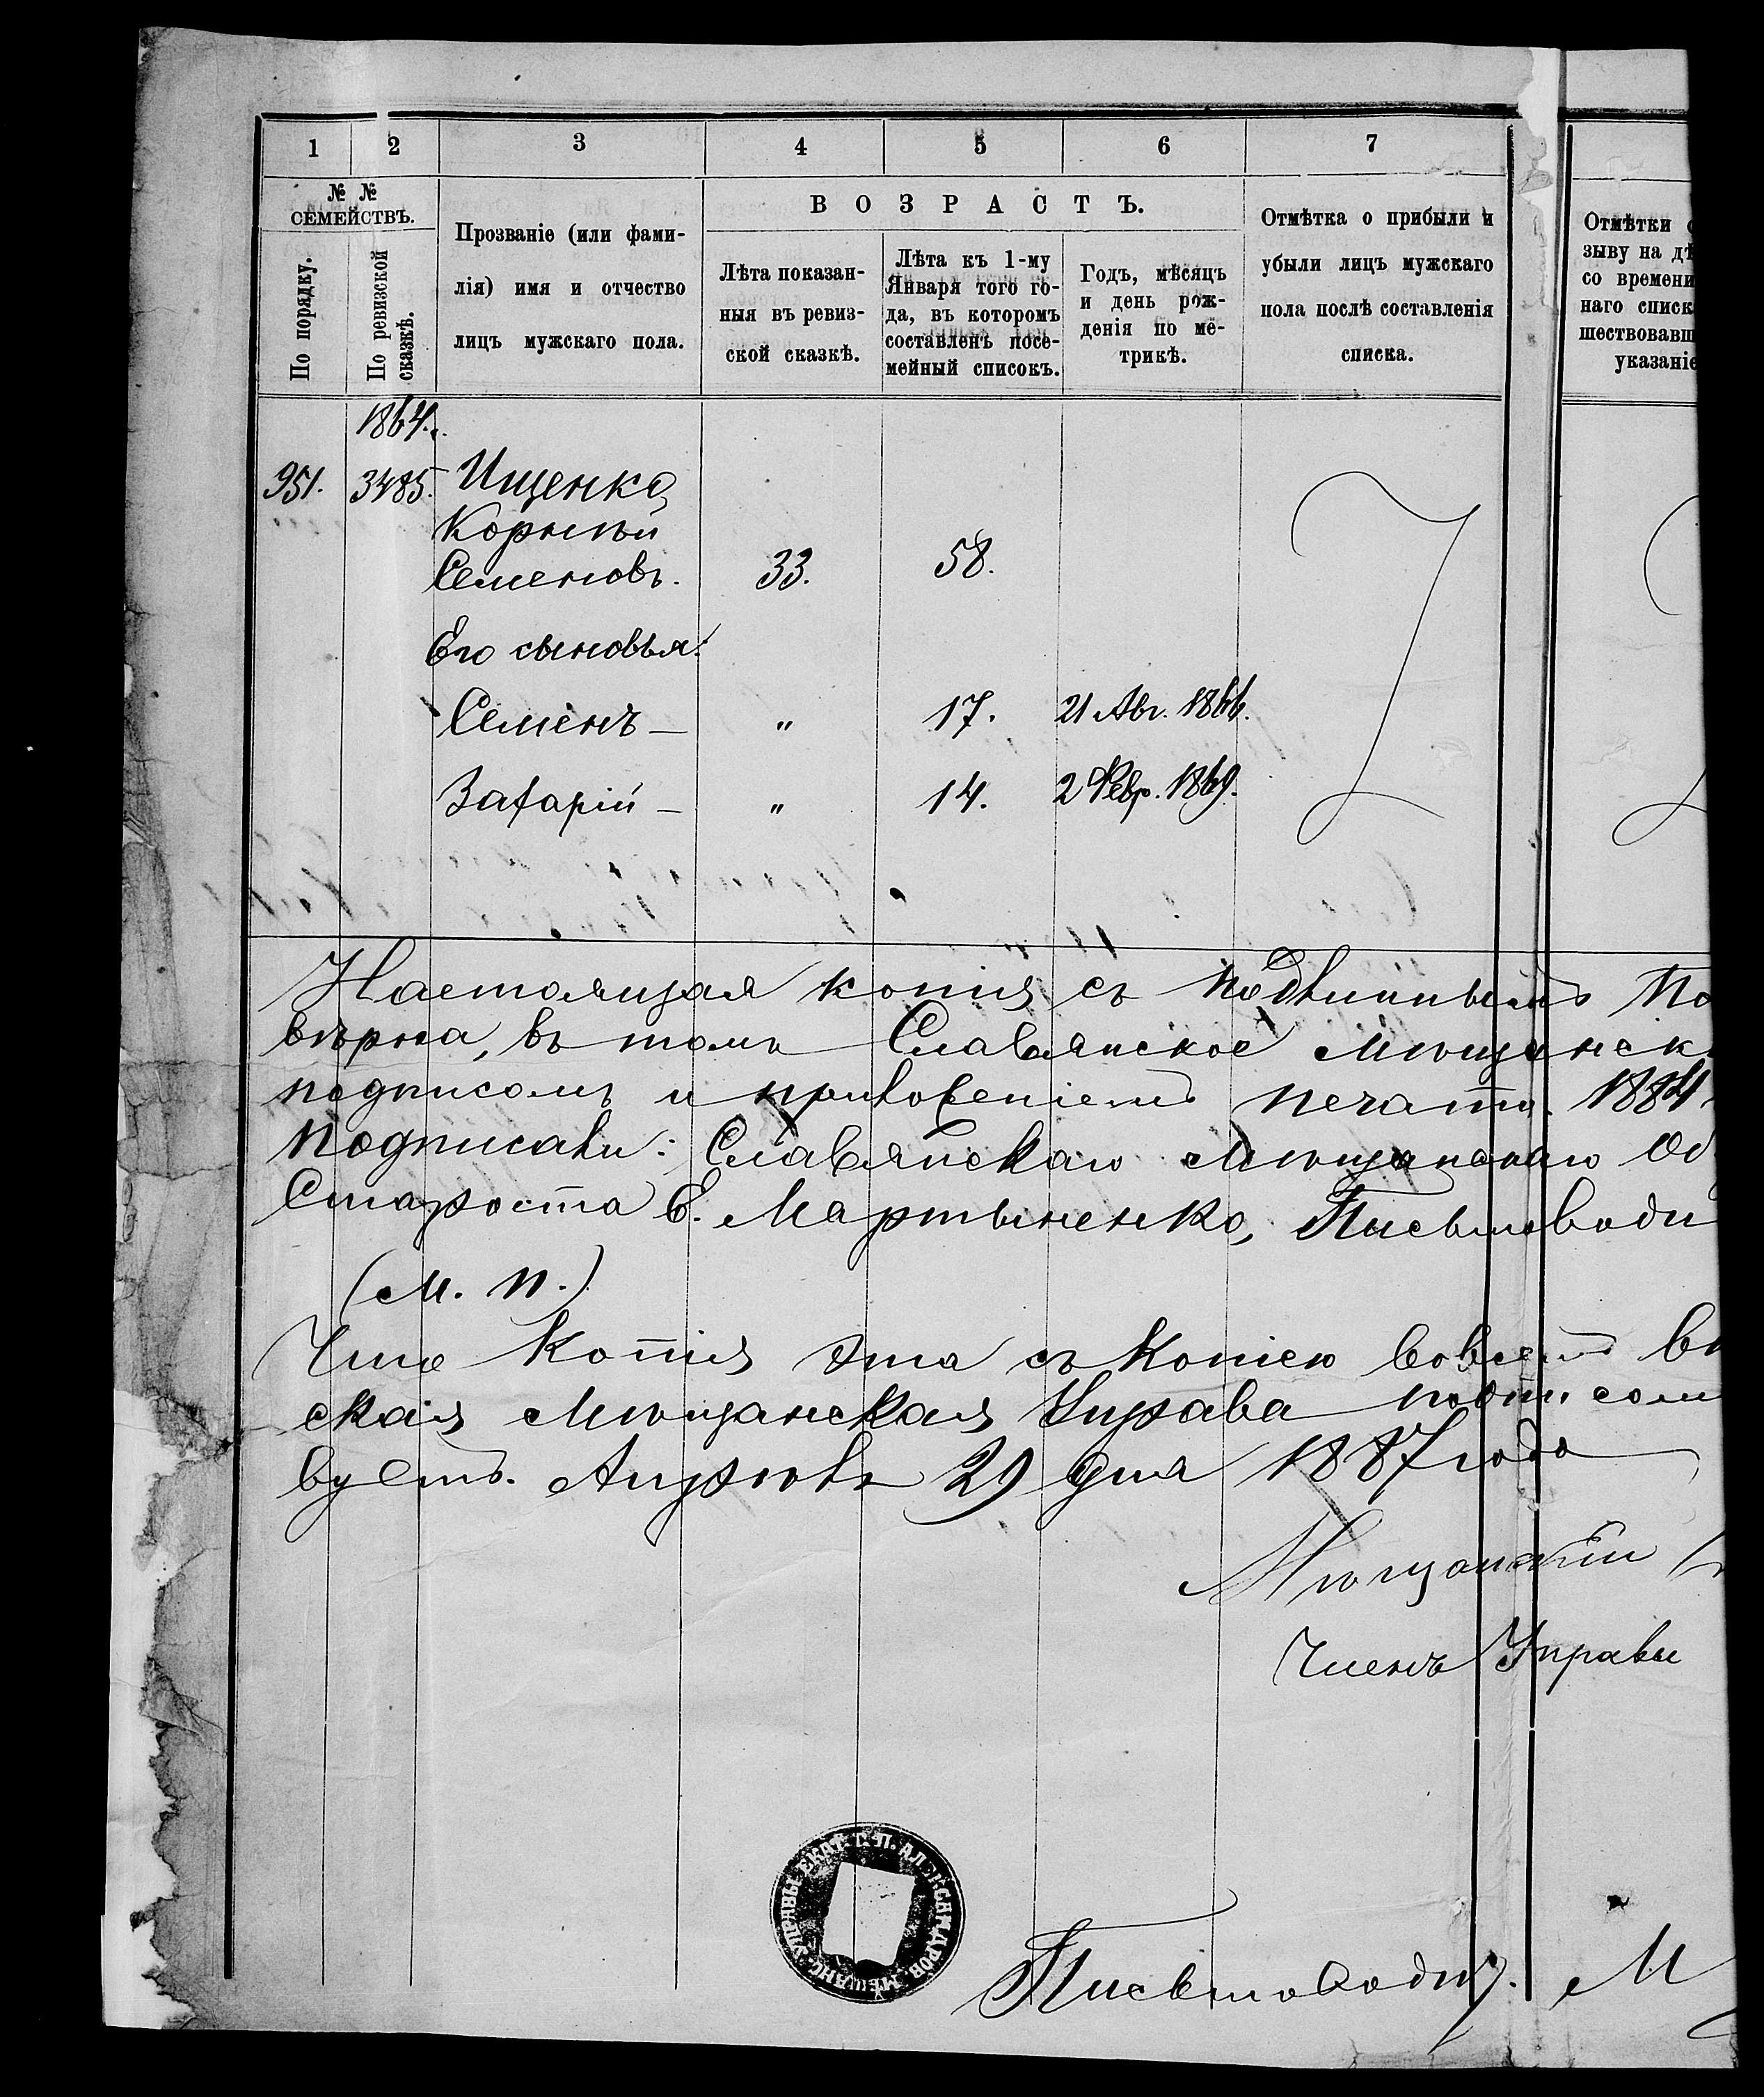 1 2 3 4 5 6 7
№ №
СЕМЕЙСТВЪ.
По порядку.
По ревизской
сказкѣ.
Прозваніе (или фами-
лія) имя и отчество
лицъ мужскаго пола.
ВОЗРАСТЪ.
Лѣта показан-
ныя въ ревиз-
ской сказкѣ.
Лѣта къ 1-му
Января того го-
да, въ которомъ
составленъ посе-
мейный списокъ.
Годъ, мѣсяцъ
и день рож-
денія по ме-
трикѣ.
Отмѣтка о прибыли и
убыли лицъ мужскаго
пола послѣ составленія
списка.
Отмѣтки о
зыву на дѣ
со времени
наго списк
шествовавш
указаніе
1864.
951. 3485. Ищенко,
Корнѣй
Семеновъ. 33. 58.
Его сыновья:
Семенъ — „ 17. 21 Авг. 1866.
Захарій — „ 14. 2 Февр. 1869.
Настоящая копія съ подлиннымъ По
вѣрна, въ томъ Славянское Мѣщанск
подписомъ и приложеніемъ печати. 1884
Подписали: Славянскаго Мѣщанскаго Об
Староста Е. Мартыненко, Письмоводи
(М. П.)
Что копія эта съ копіею вовсемъ вѣ
ская Мѣщанская Управа подписом
вуетъ. Апрѣля 29 дня 1887 года
Мѣщанскій
Членъ Управы
МѢЩАНС. УПРАВЫ ЕКАТ. Г. П. АЛЕКСАНДРОВ.
Письмоводит. М